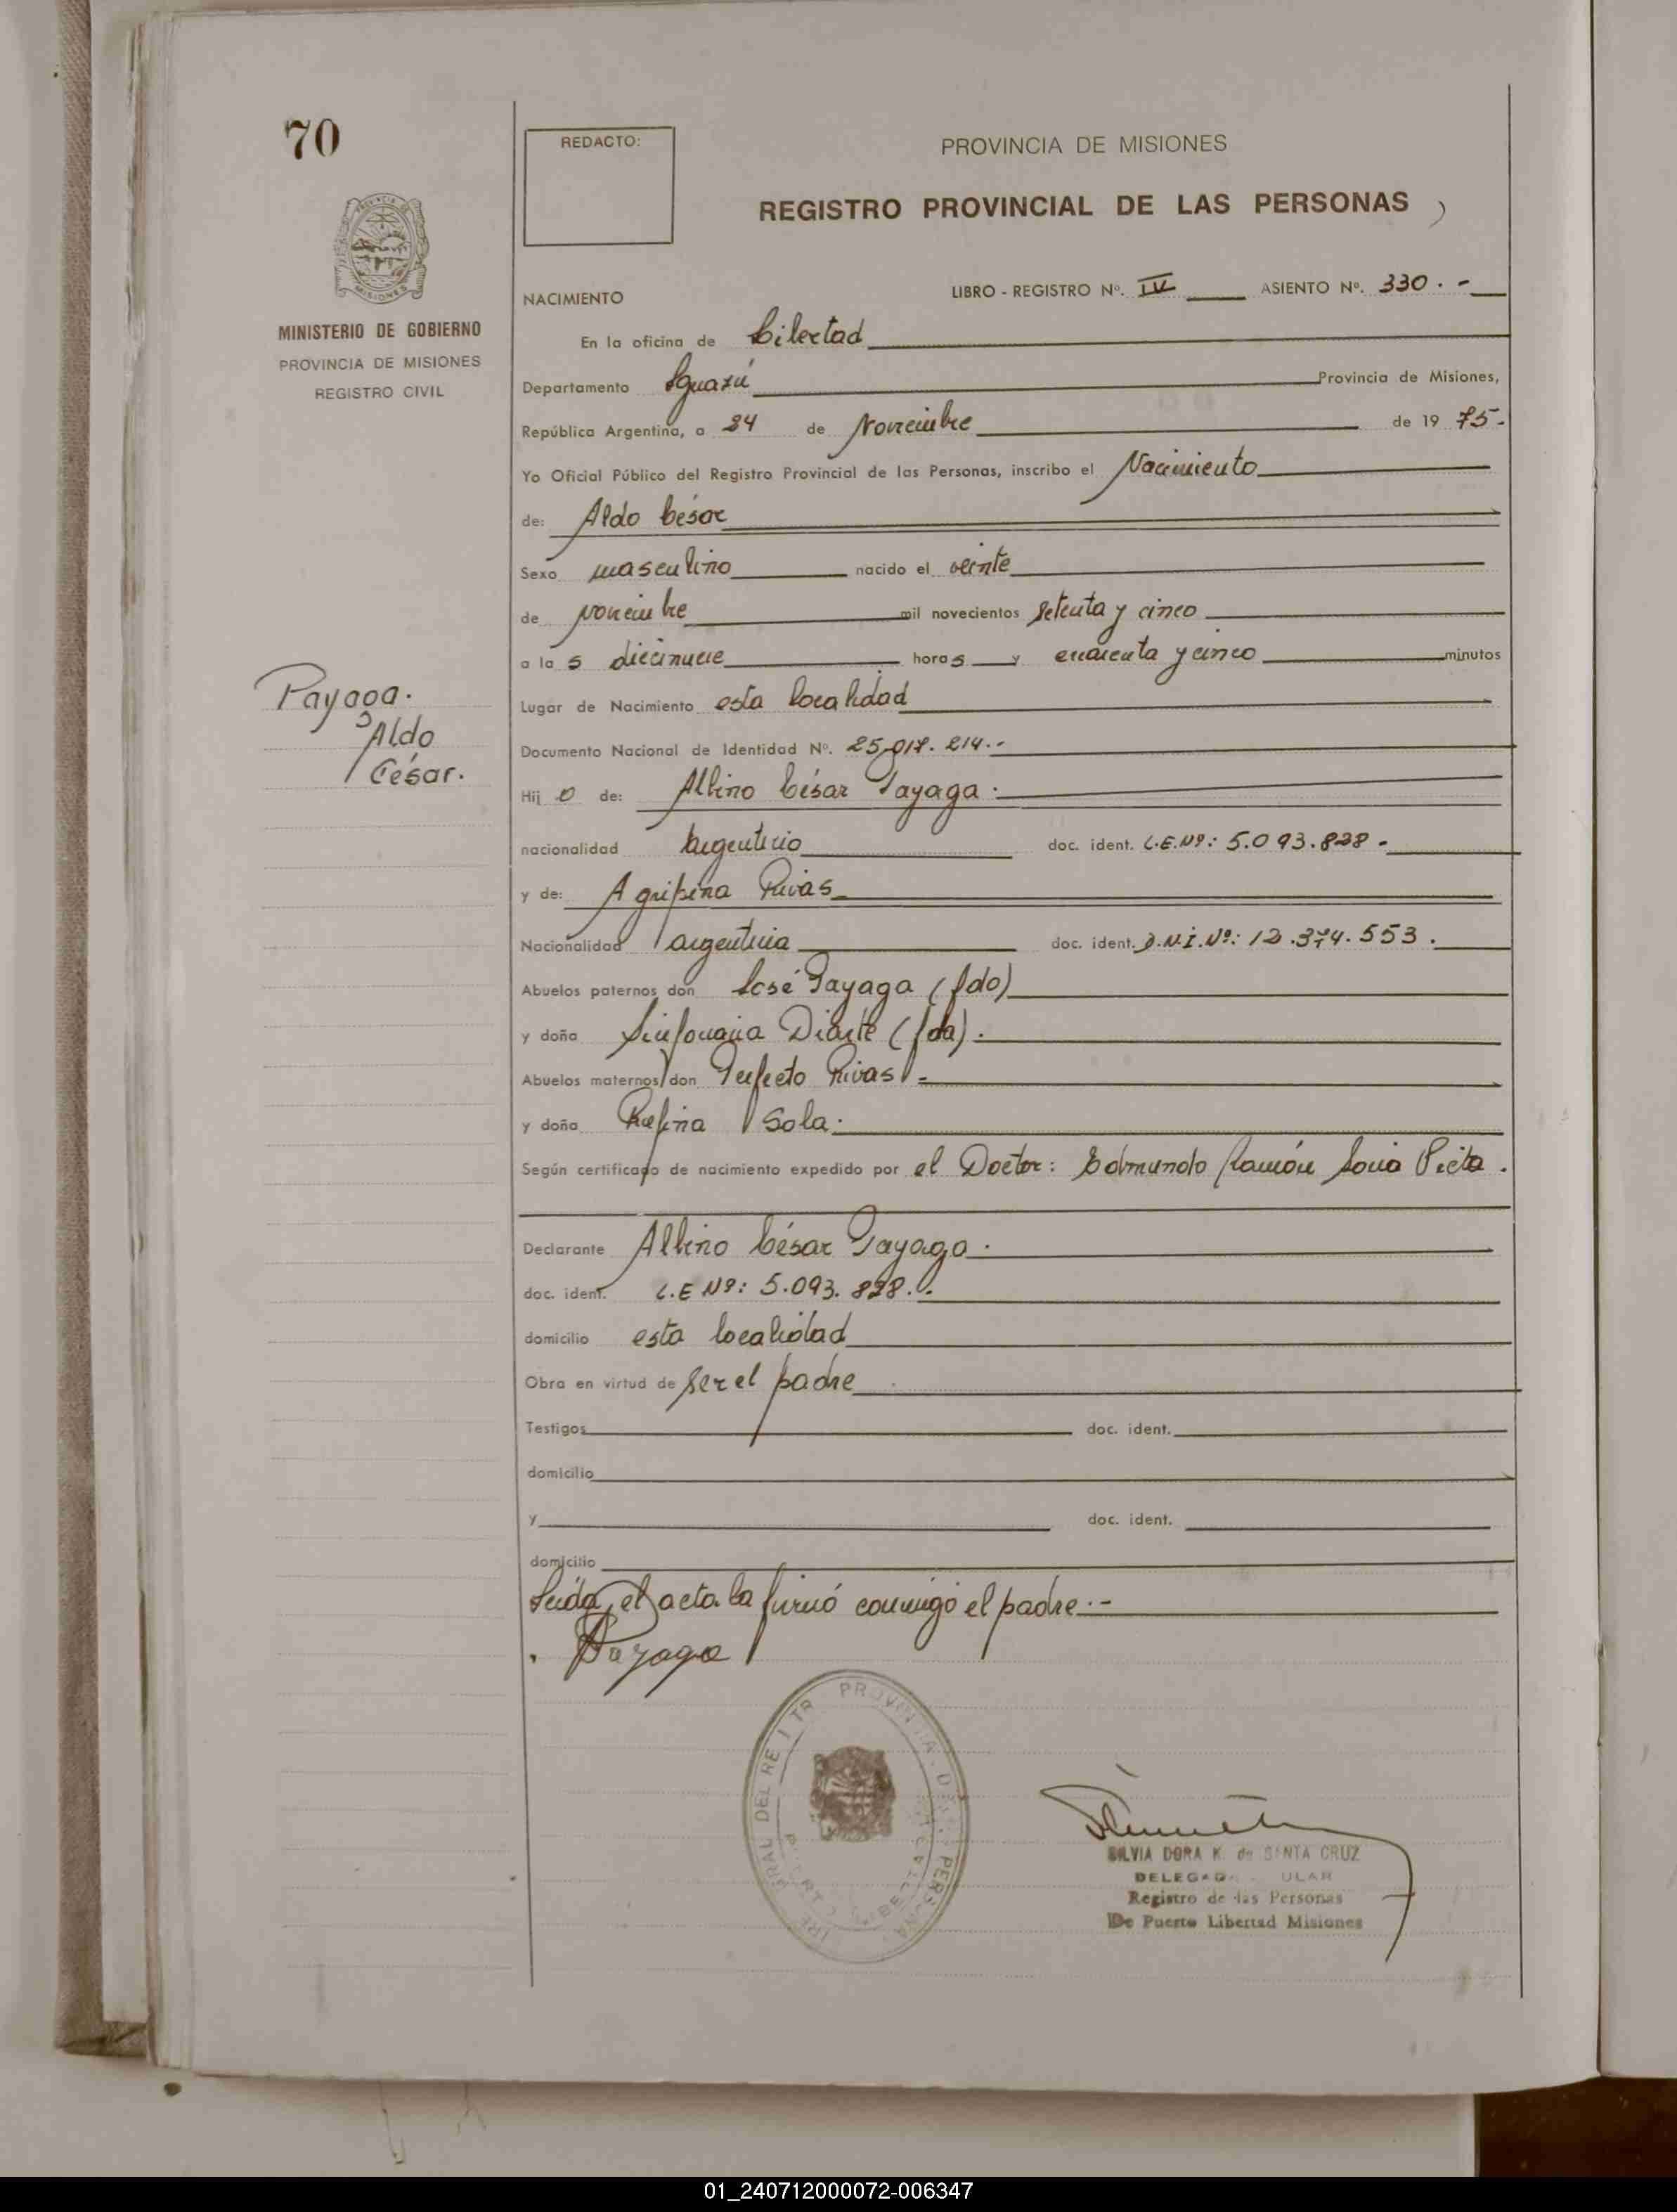 70
REDACTO:
PROVINCIA DE MISIONES
REGISTRO PROVINCIAL DE LAS PERSONAS
MINISTERIO DE GOBIERNO
PROVINCIA DE MISIONES
REGISTRO CIVIL
NACIMIENTO
LIBRO - REGISTRO Nº. IV ASIENTO Nº. 330.-
En la oficina de Libertad
Departamento Iguazú Provincia de Misiones,
República Argentina, a 24 de Noviembre de 19 75-
Yo Oficial Público del Registro Provincial de las Personas, inscribo el Nacimiento
de: Aldo César
Sexo masculino nacido el veinte
de noviembre mil novecientos setenta y cinco
a la s diecinueve horas y cuarenta y cinco minutos
Payaga.
Aldo
César.
Lugar de Nacimiento esta localidad
Documento Nacional de Identidad Nº. 25.017.214.-
Hij o de: Albino César Payaga.
nacionalidad argentino doc. ident. L.E.Nº: 5.093.828-
y de: Agripina Rivas
Nacionalidad argentina doc. ident. D.N.I.Nº: 12.374.553.
Abuelos paternos don José Payaga (fdo)
y doña Sinforiana Diarte (fda).
Abuelos maternos don Perfecto Rivas-
y doña Rufina Sola.
Según certificado de nacimiento expedido por el Doctor: Edmundo Ramón Soria
Declarante Albino César Payaga.
doc. ident. L.E Nº: 5.093.828.-
domicilio esta localidad
Obra en virtud de ser el padre
Testigos doc. ident.
domicilio
y doc. ident.
domicilio
Leída el acta la firmó conmigo el padre.-
Payaga
SILVIA DORA K. de SANTA CRUZ
Registro de las Personas
De Puerto Libertad Misiones
01_240712000072-006347